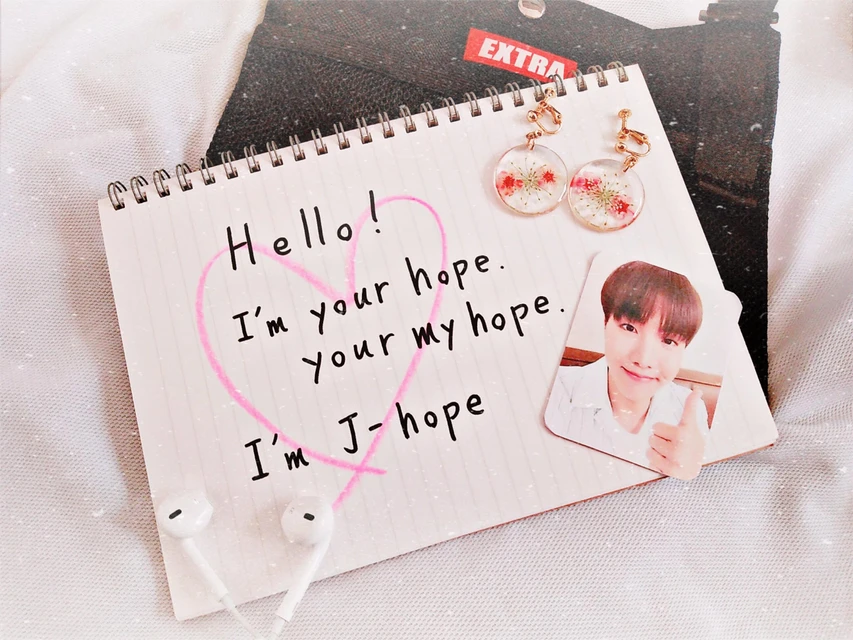 EXTRA
Hello!
I'm your hope.
your my hope.
I'm J-hope